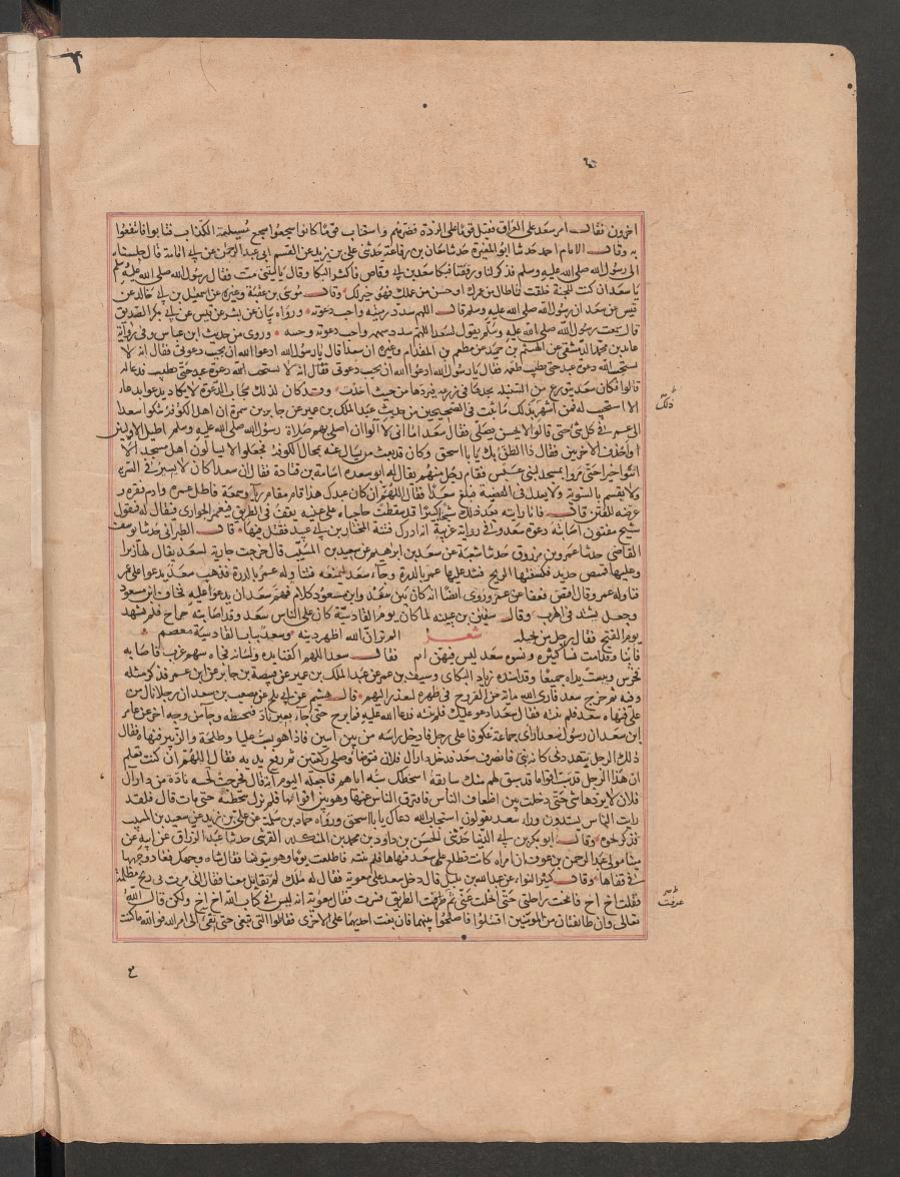 اخرون فقال امر سعد على العراق فقتل قوما على الردة فضرهم واستتاب قوما كانوا سجعوا سجع مسيلمة الكذاب فتابوا فانتفعوا
به وقال الامام احمد حدثنا ابو المغيرة حدثنا معان بن رفاعة حدثني علي بن يزيد عن القسم ابي عبد الرحمن عن ابي امامة قال جلسنا
الى رسول الله صلى الله عليه وسلم فذكرنا ورققنا فبكا سعد بن ابي وقاص فاكثر البكا وقال يا ليتني مت فقال رسول الله صلى الله عليه وسلم
يا سعد ان كنت للجنة خلقت فما طال من عمرك او حسن من عملك فهو خير لك وقال موسى بن عقبة وغيره عن اسمعيل بن ابي خالد عن
قيس عن سعد ان رسول الله صلى الله عليه وسلم قال اللهم سدد رميته واجب دعوته ورواه بيان عن بشر عن قيس عن ابي بكر الصديق
قال سمعت رسول الله صلى الله عليه وسلم يقول لسعد اللهم سدد سهمه واجب دعوته وحببه وروي من حديث ابن عباس وفي رواية
عايد بن محمد الدمشقي عن الهيثم بن حميد عن مطعم بن المقدام وغيره ان سعدا قال يا رسول الله ادعوا الله ان يجيب دعوتي فقال انه لا
يستجيب الله دعوة عبد حتى يطيب طعمه فقال يا رسول الله ادعوا الله ان يجيب دعوتي فقال انه لا يستجيب الله دعوة عبد حتى يطيب فدعا له
قالوا فكان سعد يتورع من السنبلة يجدها في زرعه فيردها من حيث اخذت وقد كان لذلك مجاب الدعوة لا يكاد يدعوا بدعاء
الا استجيب له فمن اشهر ذلك ما ثبت في الصحيحين من حديث عبد الملك بن عمير عن جابر بن سمرة ان اهل الكوفة شكوا سعدا
ذلك
الى عمر في كل شي حتى قالوا لا يحسن يصلي فقال سعد اما اني لا الوا ان اصلي بهم صلاة رسول الله صلى الله عليه وسلم اطيل الاوليين
واحذف الاخريين فقال ذا الظن بك يا با اسحق وكان قد بعث من يسال عنه بمحال الكوفة فجعلوا لا يسالون اهل مسجد الا
اثنوا خيرا حتى مروا بمسجد لبني عبس فقام رجل منهم يقال له ابو سعدة اسامة بن قتادة فقال ان سعدا كان لا يسير في السرية
ولا يقسم بالسوية ولا يعدل في القضية فبلغ سعدا فقال اللهم ان كان عبدك هذا قام مقام رياء وسمعة فاطل عمره وادم فقره و
عرضه للفتن قال فانا رايته بعد ذلك شيخا كبيرا قد سقطت حاجباه على عينيه يقف في الطريق فيغمز الجواري فيقال له فيقول
شيخ مفتون اصابته دعوة سعد وفي رواية غريبة انه ادرك فتنة المختار بن ابي عبيد فقتل فيها قال الطبراني حدثنا يوسف
القاضي حدثنا عمرو بن مرزوق حدثنا شعبة عن سعد بن ابرهيم عن سعيد بن المسيب قال خرجت جارية لسعد يقال لها زبرا
وعليها قميص جديد فكشفتها الريح فشد عليها عمر بالدرة وجاء سعد ليمنعه فتناوله عمر بالدرة فذهب سعد يدعوا على عمر
فناوله عمر وقال اقتص فعفا عن عمر وروي ايضا انه كان بين سعد وابن مسعود كلام فهم سعد ان يدعوا عليه فخاف ابن مسعود
وجعل يشتد في الهرب وقال سفين بن عيينه لما كان يوم القادسية كان على الناس سعد وقد اصابته جراح فلم يشهد
يوم الفتح فقال رجل من بجيله شعر الم تر ان الله اظهر دينه وسعد بباب القادسية معصم
فابنا وقد امت نسا كثيرة ونسوة سعد ليس فيهن ايم فقال سعد اللهم اكفنا يده ولسانه فجاءه سهم غرب فاصابه
فخرس ويبست يداه جميعا وقد اسنده زياد البكاي وسيف بن عمر عن عبد الملك بن عمير عن قبيصة بن جابر عن ابن عمر فذكر مثله
وفيه ثم خرج سعد فاري الله ما به من القروح في ظهره ليعذر اليهم قال هشيم عن ابي بلج عن مصعب بن سعد ان رجلا نال من
علي فنهاه سعد فلم ينته فقال سعد ادعو عليك فلم ينته فدعا الله عليه فما برح حتى جاء بعير ناد فتخبطه وجا من وجه اخر عن عامر
ابن سعد ان رسول سعدا راى جماعة عكوفا على رجل فادخل راسه من بين اثنين فاذا هو يسب عليا وطلحة والزبير فنهاه فقال
ذلك الرجل يتهددني كانه نبي فانصرف سعد فدخل دار ال فلان فتوضا وصلى ركعتين ثم رفع يديه فقال اللهم ان كنت تعلم
ان هذا الرجل قد سب اقواما قد سبق لهم منك سابقة اسخطك سبه اياهم فاجعله اليوم اية قال فخرجت بختية نادة من دار ال
فلان لا يردها شي حتى دخلت بين اضعاف الناس فافترق الناس عنها وهو بين ارجلها فلم تزل تتخبطه حتى مات قال فلقد
رايت الناس يشتدون ورا سعد يقولون استجاب الله دعاك يا با اسحق ورواه حماد بن سلمة عن علي بن زيد عن سعيد بن المسيب
فذكر نحوه وقال ابو بكر بن ابي الدنيا حدثني الحسن بن داود بن محمد بن المنكدر القرشي حدثنا عبد الرزاق عن ابيه عن
مينا مولى عبد الرحمن بن عوف ان امراة كانت تطلع على سعد فنهاها فلم تنته فاطلعت يوما وهو يتوضا فقال شاه وجهك فعاد وجهها
في قفاها وقال كثير النوا عن عبد الله بن بديل قال دخل سعد على معوية فقال له ما لك لم تقاتل معنا فقال اني مرت بي ريح مظلمة
فقلت اخ اخ فانخت راحلتي حتى انجلت عني ثم عرفت الطريق فسرت فقال معوية انه ليس في كتاب الله اخ اخ ولكن قال الله
عرفت
تعالى وان طائفتان من المومنين اقتتلوا فاصلحوا بينهما فان بغت احديهما على الاخرى فقاتلوا التي تبغي حتى تفيء الى امر الله فوالله ما كنت